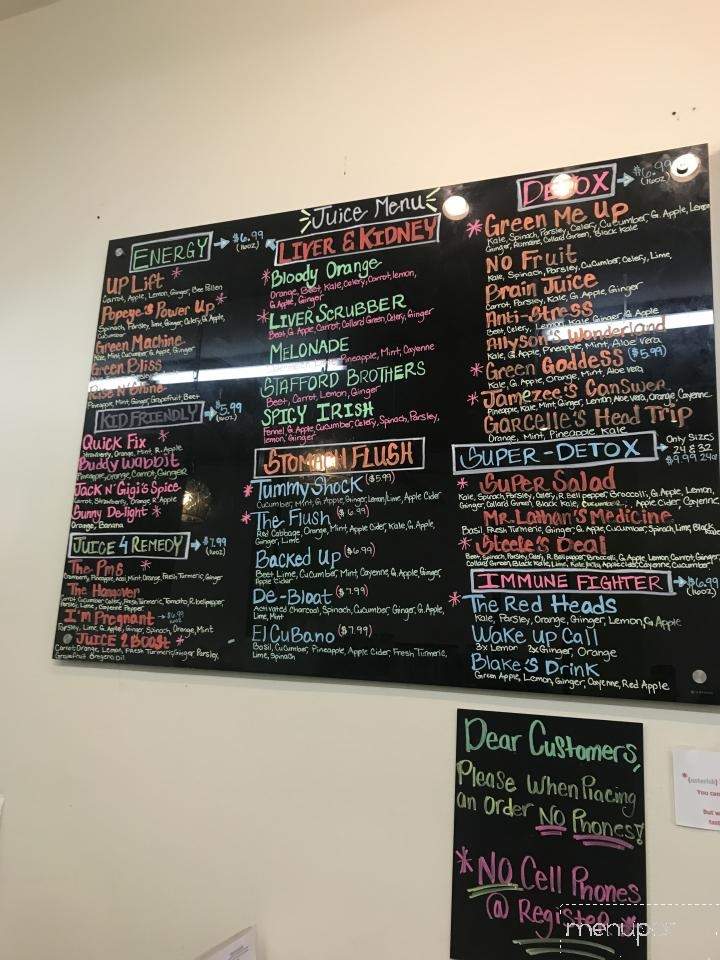 Juice Menu
ENERGY → $6.99
(16oz)
UP Lift *
Carrot, Apple, Lemon, Ginger, Bee Pollen
Popeye's Power Up *
Spinach, Parsley, Lime, Ginger, Celery, G. Apple,
Cucumber
Green Machine
Kale, Mint, Cucumber, G. Apple, Ginger
Green Bliss
Rise N' Grind
Pineapple, Mint, Ginger, Grapefruit, Beet
KID FRIENDLY → $5.99
(16oz)
Quick Fix *
Strawberry, Orange, Mint, R. Apple
Buddy Wabbit
Pineapple, Orange, Carrot, Ginger
Jack N' Gigi's Spice
Carrot, Strawberry, Orange, R. Apple
Sunny De-light *
Orange, Banana
JUICE 4 REMEDY → $7.99
(16oz)
The Pms *
Cranberry, Pineapple, Mint, Orange, Fresh Turmeric, Ginger
The Hangover
Carrot, Cucumber, Celery, Fresh Turmeric, Tomato, R. bellpepper,
Parsley, Lime, Cayenne Pepper
I'm Pregnant → $6.99
Parsley, Lime, G. Apple, Ginger, Spinach, Orange, Mint
* Juice 2 Boost *
Carrot, Orange, Lemon, Fresh Turmeric, Ginger, Parsley,
Grapefruit, Oregano Oil
LIVER & KIDNEY
* Bloody Orange
Orange, Beet, Kale, Celery, Carrot, lemon,
G. Apple, Ginger
* LIVER SCRUBBER
Beet, G. Apple, Carrot, Collard Green, Celery, Ginger
MELONADE
Pineapple, Mint, Cayenne
STAFFORD BROTHERS
Beet, Carrot, Lemon, Ginger
SPICY IRISH
Fennel, G. Apple, Cucumber, Celery, Spinach, Parsley,
lemon, Ginger
STOMACH FLUSH
* Tummy Shock ($5.99)
Cucumber, Mint, G. Apple, Ginger, Lemon/Lime, Apple Cider
* The Flush ($6.99)
Red Cabbage, Orange, Mint, Apple Cider, Kale, G. Apple,
Ginger, Lime
Backed Up ($6.99)
Beet, Lime, Cucumber, Mint, Cayenne, G. Apple, Ginger,
Apple Cider
De-Bloat ($7.99)
Activated Charcoal, Spinach, Cucumber, Ginger, G. Apple,
Lime, Mint
El Cubano ($7.99)
Basil, Cucumber, Pineapple, Apple Cider, Fresh Turmeric,
Lime, Spinach
DETOX → $6.99
(16oz)
* Green Me Up
Kale, Spinach, Parsley, Celery, Cucumber, G. Apple, Lemon
Ginger, Romaine, Collard Green, Black Kale
No Fruit
Kale, Spinach, Parsley, Cucumber, Celery, Lime,
Brain Juice
Carrot, Parsley, Kale, G. Apple, Ginger
Anti-Stress
Beet, Celery, Lemon, Kale, Ginger, G. Apple
Allyson's Wonderland
Kale, G. Apple, Pineapple, Mint, Aloe Vera
* Green Goddess ($5.99)
Kale, G. Apple, Orange, Mint, Aloe Vera
* Jamezee's CanSwer
Pineapple, Kale, Mint, Ginger, Lemon, Aloe Vera, Orange, Cayenne
Garcelle's Head Trip
Orange, Mint, Pineapple, Kale
SUPER-DETOX → Only Sizes
24 & 32
$9.99 24oz
* Super Salad
Kale, Spinach, Parsley, Celery, R. Bell pepper, Broccoli, G. Apple, Lemon,
Ginger, Collard Green, Black Kale, Cucumber, Apple Cider, Cayenne
Mr. Lathan's Medicine
Basil, Fresh Turmeric, Ginger, G. Apple, Cucumber, Spinach, Lime, Black
Kale
* Steele's Deal
Beet, Spinach, Parsley, Celery, R. Bellpepper, Broccoli, G. Apple, Lemon, Carrot, Ginger
Collard Green, Black Kale, Lime, Kale, Apple Cider, Cayenne, Cucumber
IMMUNE FIGHTER → $6.99
(16oz)
* The Red Heads
Kale, Parsley, Orange, Ginger, Lemon, G. Apple
Wake Up Call
3x Lemon 2x Ginger, Orange
Blake's Drink
Green Apple, Lemon, Ginger, Cayenne, Red Apple
Dear Customers,
Please When Placing
an Order NO Phones!
* NO Cell Phones
@ Register *
* (asterisk)
You can
But w
tast
menupix